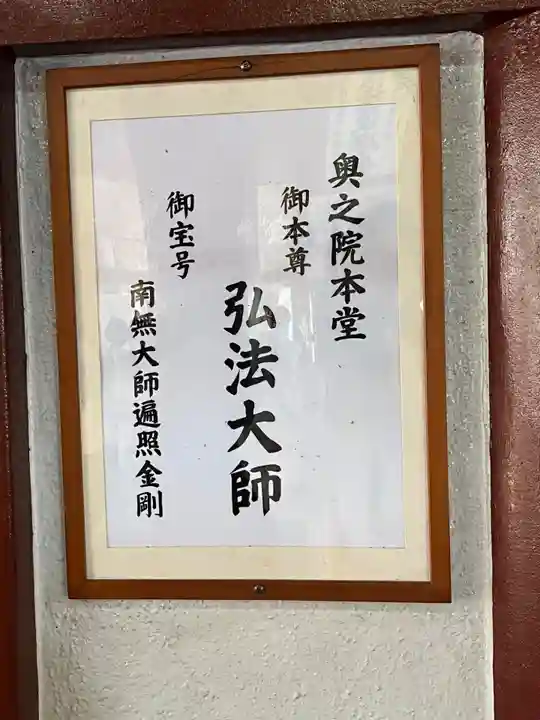 奥之院本堂
御本尊
弘法大師
御宝号
南無大師遍照金剛